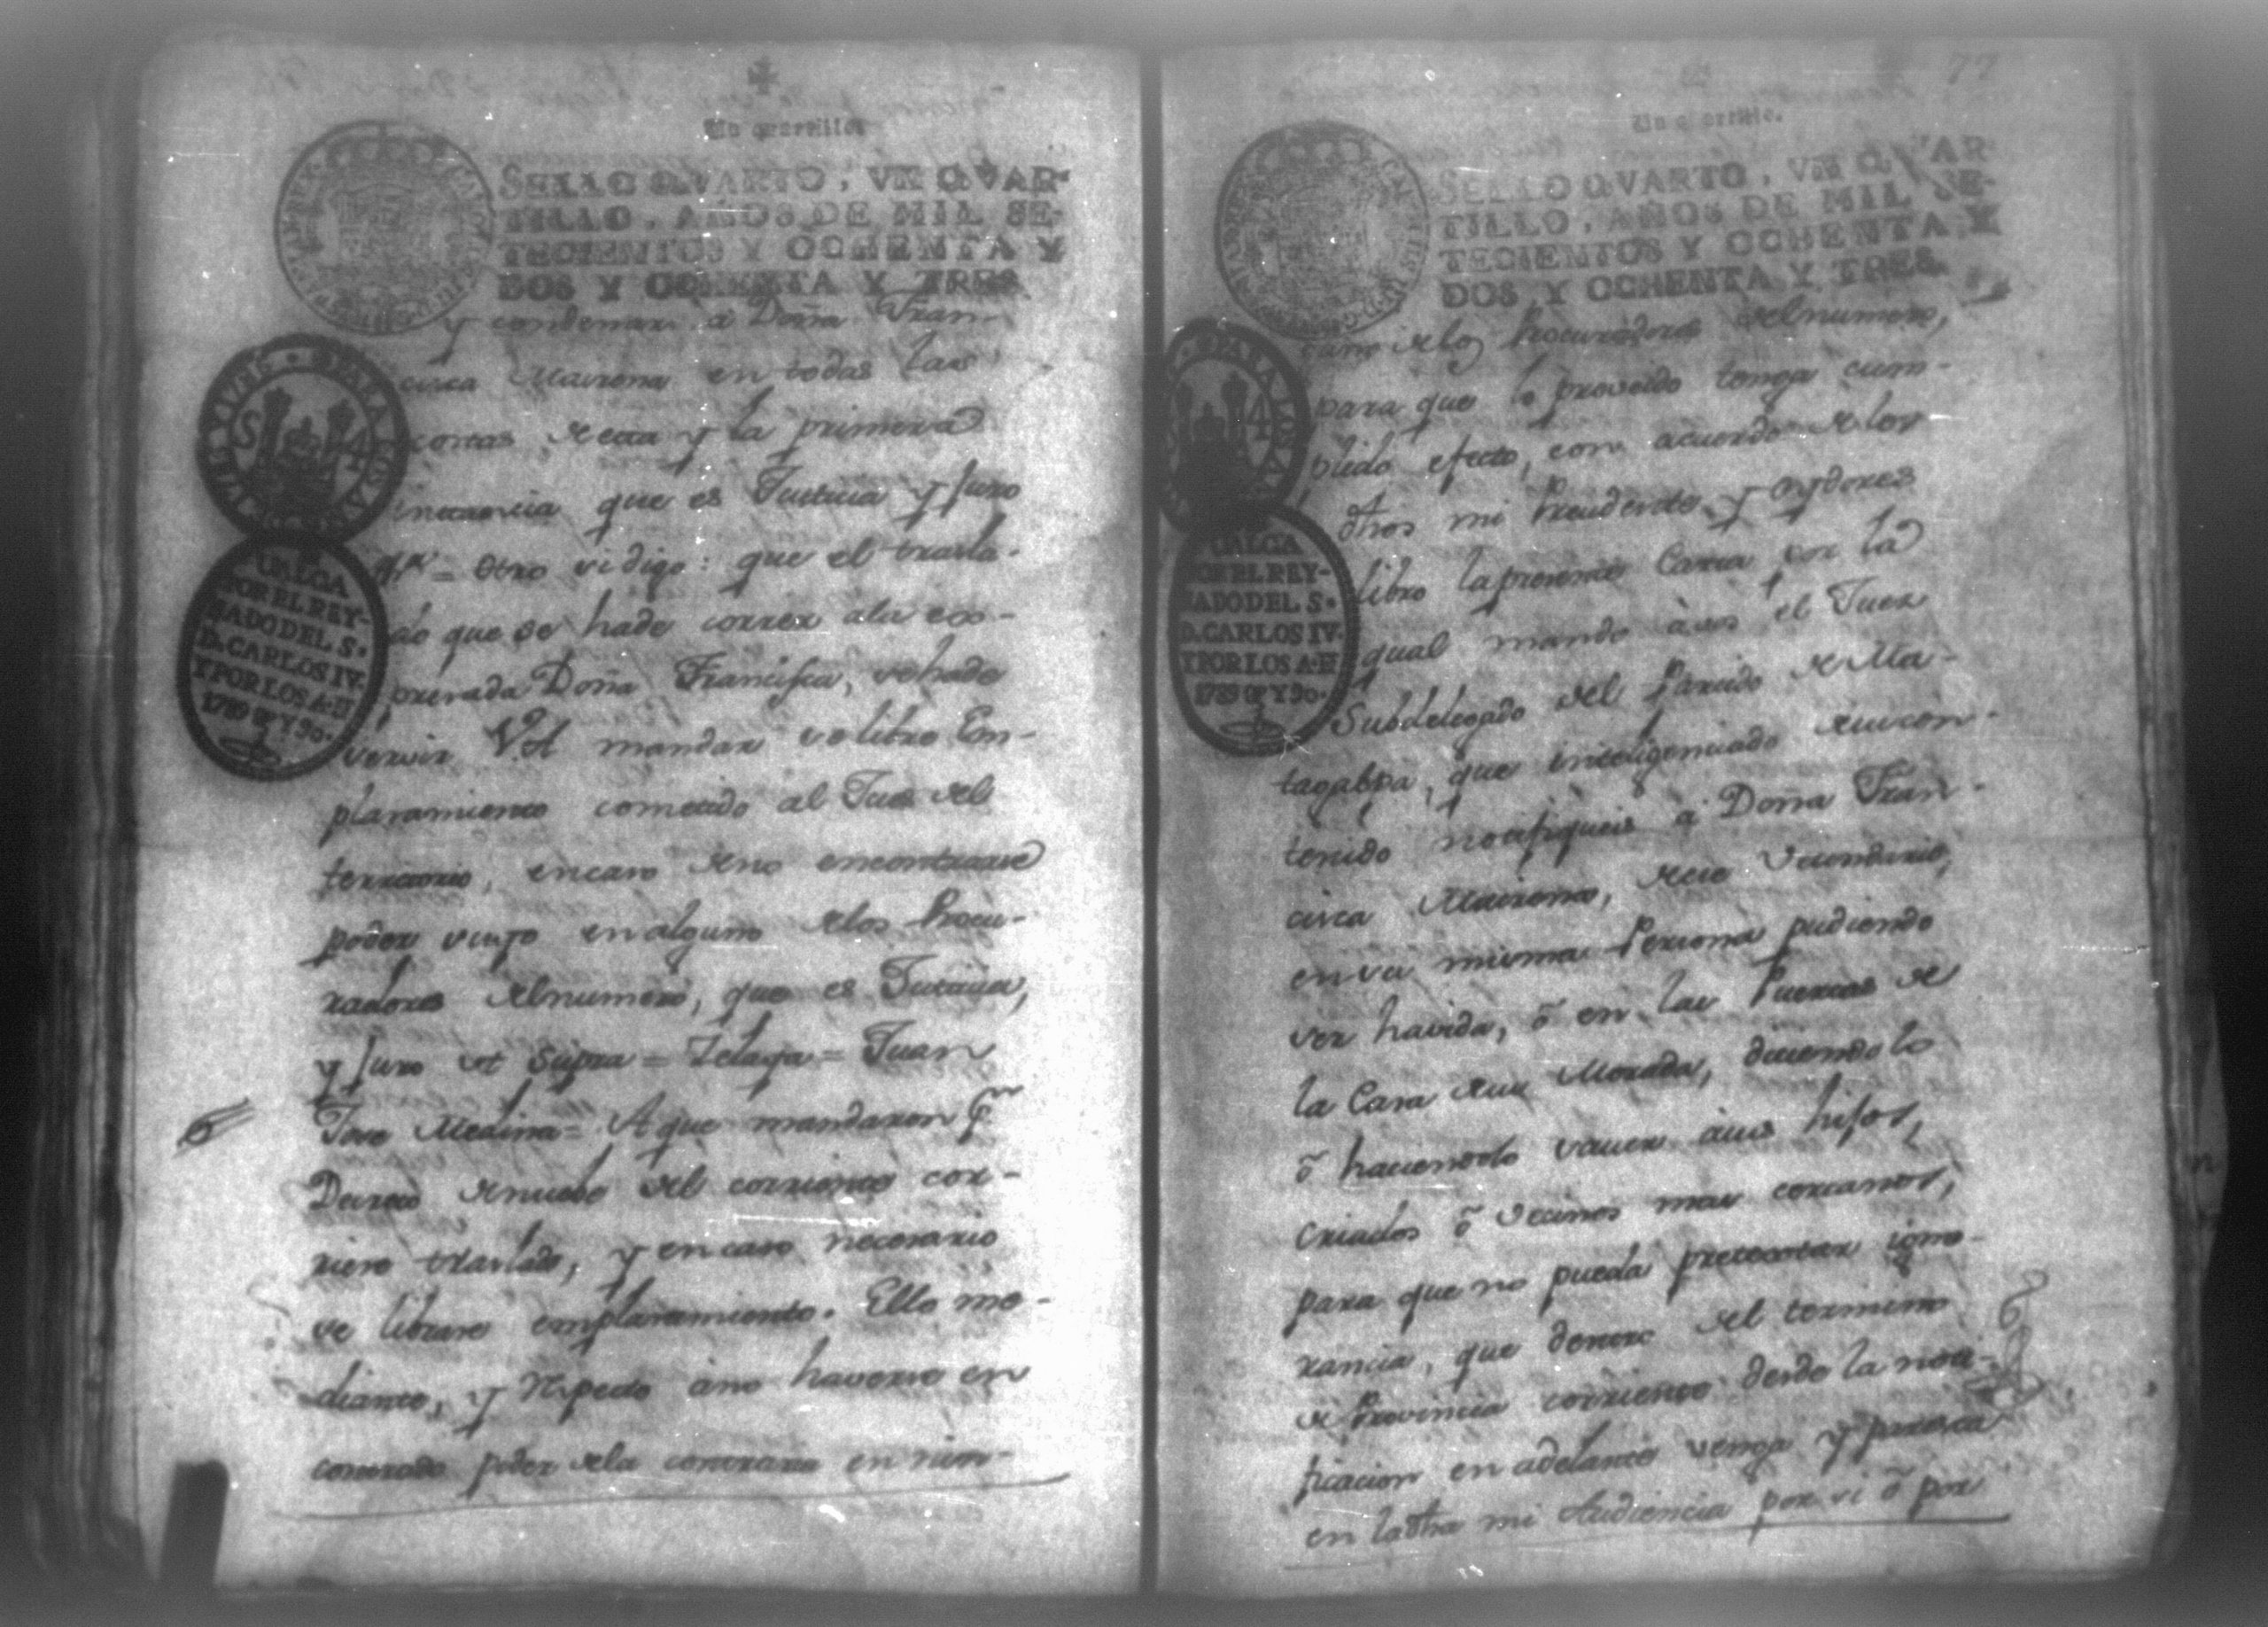 Un quartillo.
SELLO QVARTO, VN QVAR-
TILLO, AÑOS DE MIL SE-
TECIENTOS Y OCHENTA Y
DOS Y OCHENTA Y TRES.
S 4
VALGA
POR EL REY-
NADO DEL S.
D. CARLOS IV.
Y POR LOS A. D
1789 Y 90.
y condenar à Doña Fran-
cisca Mairena en todas las
costas de esta y la primera
instancia que es Justicia y Juro
otro si digo: que el trasla-
do que se hade correr ala ex-
presada Doña Francisca, sehade
servir V.A. mandar se libre Em-
plasamiento cometido al Jues del
territorio, encaso deno encontrarse
poder suyo en alguno delos Procu-
radores delnumero, que es Justicia,
y Juro ut supra = Zelaya = Juan
Jose Medina = A que mandaron pr
Decreto denuebe del corriente cor-
riere traslado, y encaso necesario
se librare emplasamiento. Ello me-
diante, y respecto àno haverse en
contrado poder dela contraria en nin-
77
Un quartillo.
SELLO QVARTO, VN QVAR-
TILLO, AÑOS DE MIL SE-
TECIENTOS Y OCHENTA Y
DOS Y OCHENTA Y TRES.
4
VALGA
POR EL REY-
NADO DEL S.
D. CARLOS IV.
Y POR LOS A. D
1789 Y 90.
guno delos Procuradores delnumero,
para que lo proveido tenga cum-
plido efecto, con acuerdo delos
dhos mi Presidente y Oydores
libro lapresente Carta por la
qual mando àvos el Juez
Subdelegado del Partido de Ma-
tagalpa, que inteligenciado desucon-
tenido notifiqueis à Doña Fran-
cisca Mairena, dese Vecindario,
ensu misma Persona pudiendo
ser havida, ò en las Puertas de
la Casa desu Morada, diciendolo
ò haciendolo saver àsus hijos,
criados ò vecinos mas cercanos,
para que no pueda pretextar igno-
rancia, que dentro del termino
de Provincia corriente desde la noti-
ficacion en adelante venga y paresca
en ladha mi Audiencia por si ò por